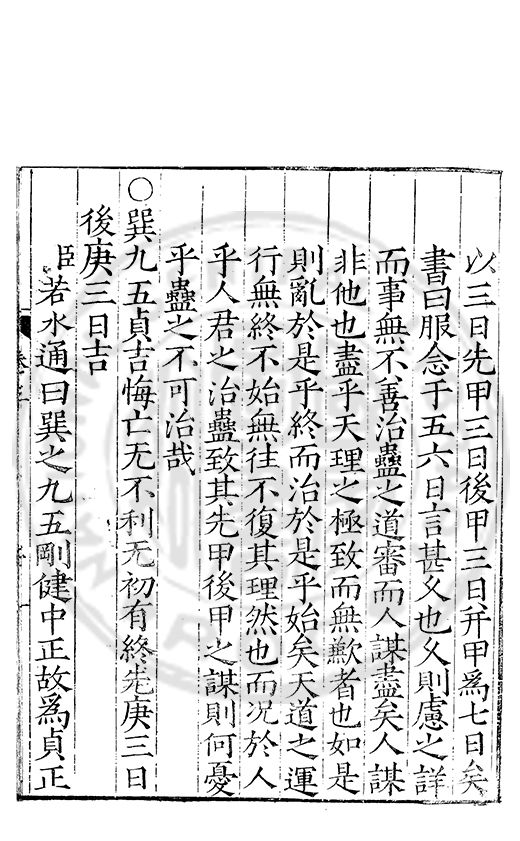 以三日先甲三日後甲三日幷甲爲七日矣
書曰服念于五六日言甚久也久則慮之詳
而事無不善治蠱之道審而人謀盡矣人謀
非他也盡乎天理之極致而無歉者也如是
則亂於是乎終而治於是乎始矣天道之運
行無終不始無往不復其理然也而况於人
乎人君之治蠱致其先甲後甲之謀則何憂
乎蠱之不可治哉
○巽九五貞吉悔亡无不利无初有終先庚三日
後庚三日吉
臣若水通曰巽之九五剛健中正故爲貞正